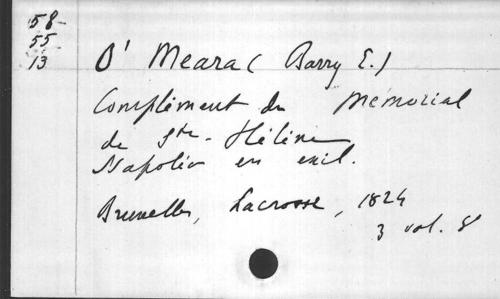 58
55
13
O' Meara ( Barry E.)
Complément du Mémorial
de Ste. Hélène
Napoléon en exil.
Bruxelles, Lacrosse, 1824
3 vol. 8